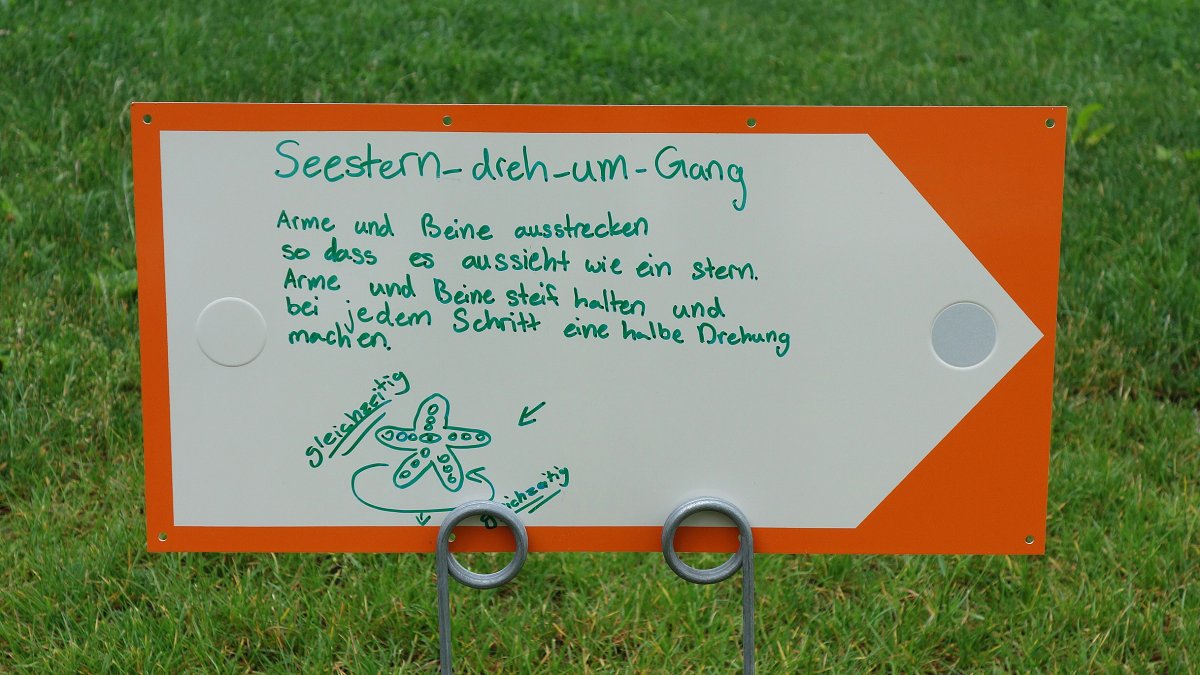 Seestern-dreh-um-Gang
Arme und Beine ausstrecken
so dass es aussieht wie ein stern.
Arme und Beine steif halten und
bei jedem Schritt eine halbe Drehung
machen.
gleichzeitig
gleichzeitig